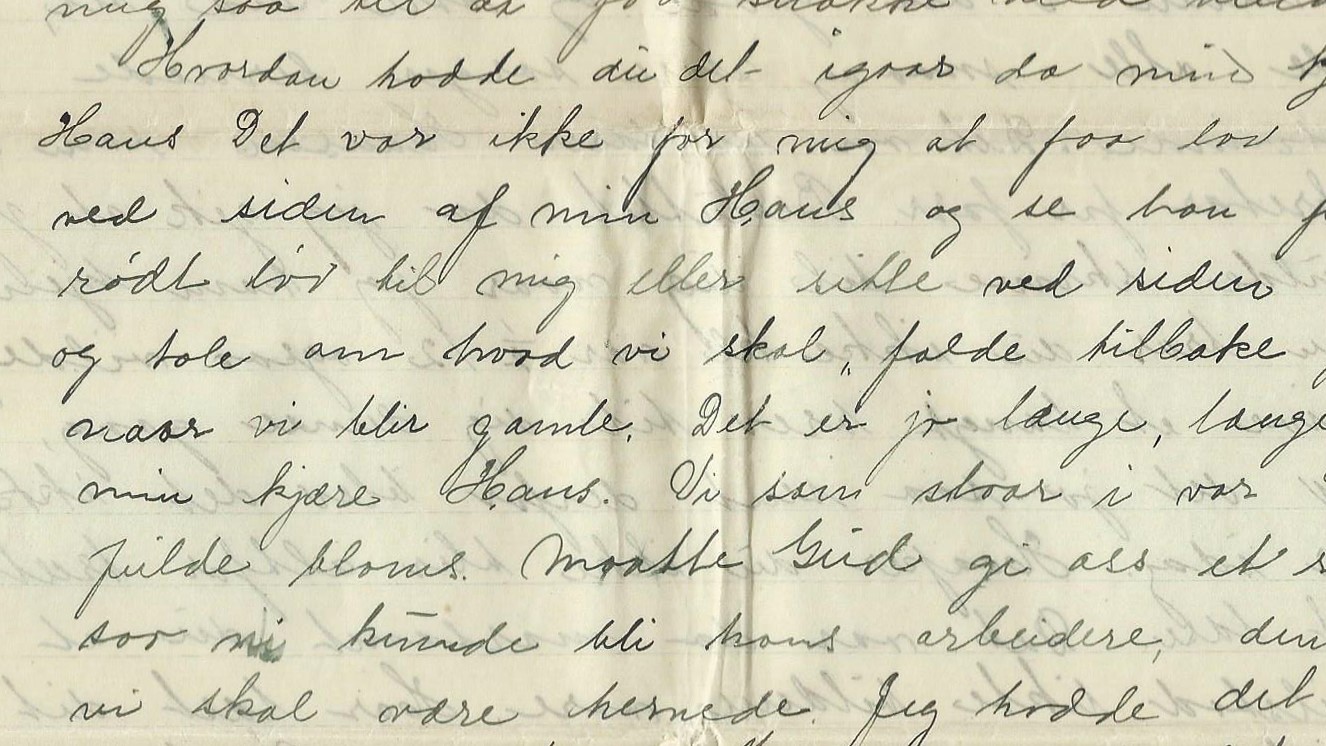 mig saa til at snakke med
Hvordan hadde du det igaar da min
Hans Det var ikke for mig at faa lov
ved siden af min Hans og se han
rødt lød til mig eller sitte ved siden
og tale om hvad vi skal „ falde tilbake
naar vi blir gamle. Det er jo længe, længe
min kjære Hans. Vi som staar i vor
fulde bloms. Maatte Gud gi oss et
saa vi kunde bli hans arbeidere, den
vi skal være hernede. Jeg hadde det